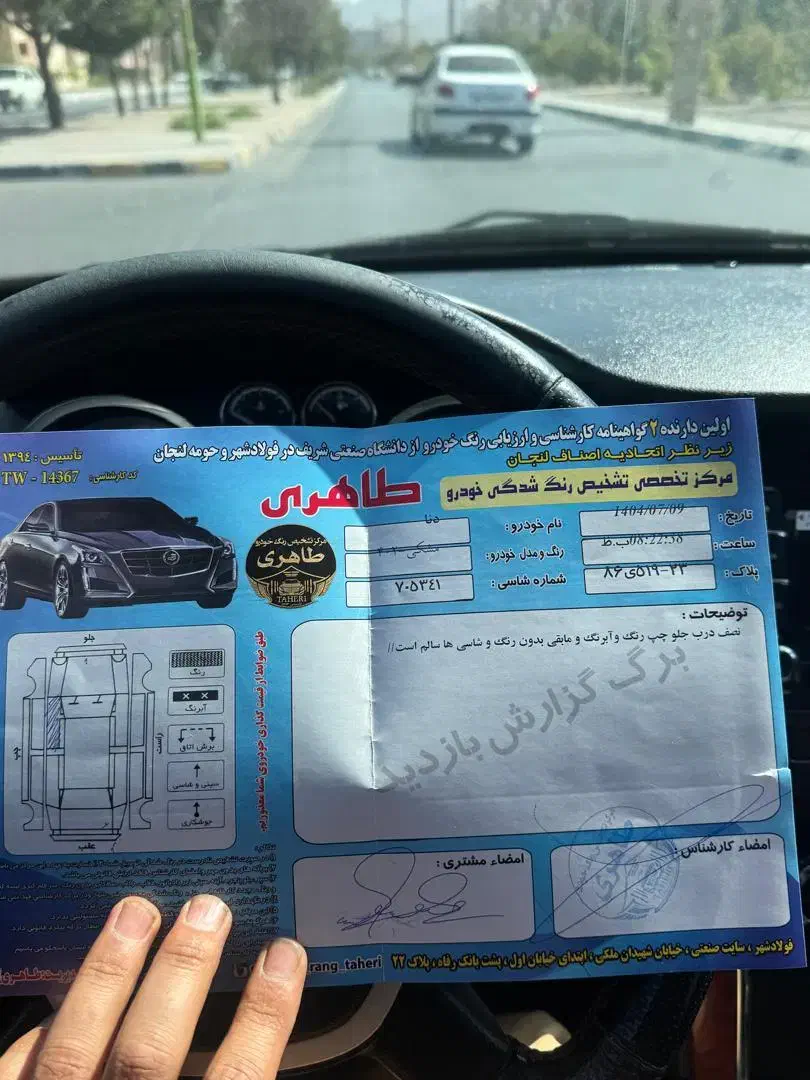 اولین دارنده ۲ گواهینامه کارشناسی و ارزیابی رنگ خودرو از دانشگاه صنعتی شریف در فولادشهر و حومه لنجان
زیر نظر اتحادیه اصناف لنجان
تأسیس : ۱۳۹۴
کد کارشناسی: TW - 14367
مرکز تخصصی تشخیص رنگ شدگی خودرو
طاهری
تاریخ: 1404/07/09
نام خودرو: دنا
ساعت: 08:22:58 ب.ظ
رنگ و مدل خودرو: مشکی
پلاک: ۸۶ی۵۱۹-۲۳
شماره شاسی: ۷۰۵۳۴۱
مرکز تشخیص رنگ خودرو
طاهری
TAHERI
توضیحات :
نصف درب جلو چپ رنگ وآبرنگ و مابقی بدون رنگ و شاسی ها سالم است//
برگ گزارش بازدید
طبق ضوابط از قیمت گذاری خودروی شما معذوریم.
جلو
چپ
راست
عقب
رنگ
آبرنگ
برش اتاق
سینی و شاسی
جوشکاری
امضاء کارشناس :
امضاء مشتری :
فولادشهر ، سایت صنعتی ، خیابان شهیدان ملکی ، ابتدای خیابان اول ، پشت بانک رفاه ، پلاک ۲۲
rang_taheri